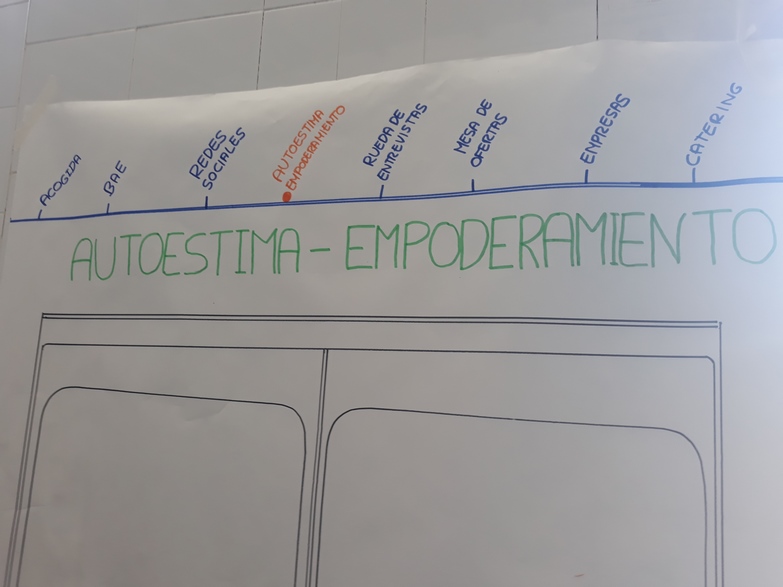 ACOGIDA
BAE
REDES
SOCIALES
AUTOESTIMA
EMPODERAMIENTO
RUEDA DE
ENTREVISTAS
MESA DE
OFERTAS
EMPRESAS
CATERING
AUTOESTIMA - EMPODERAMIENTO